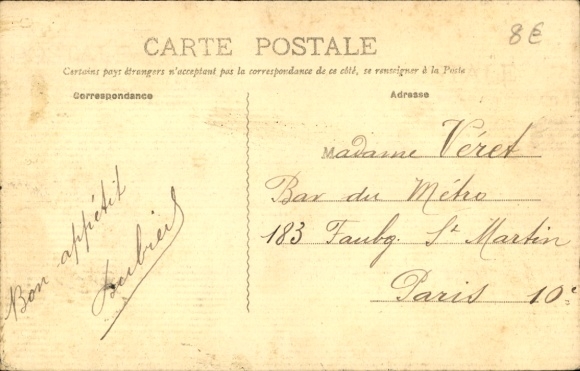 8€
CARTE POSTALE
Certains pays étrangers n'acceptant pas la correspondance de ce côté, se renseigner à la Poste
Correspondance
Adresse
Bon appétit
Madame Véret
Bar du Métro
183 Faubg. St Martin
Paris 10e